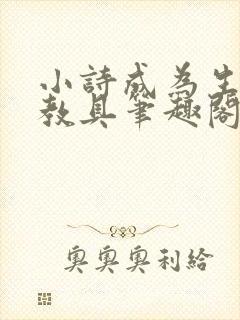 小詩成為生
教具筆趣閣
奧奧奧利給